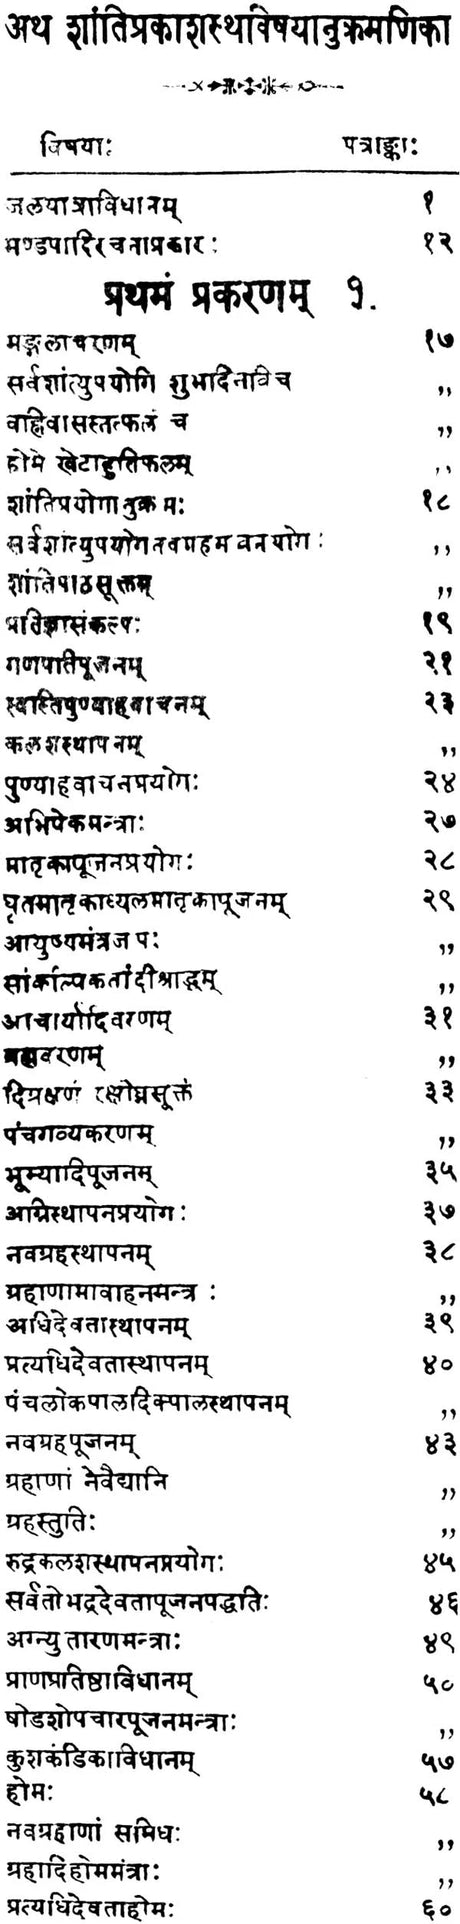 अथ शांतिप्रकाशस्थविषयानुक्रमणिका
विषयाः पत्राङ्काः
जलयात्राविधानम् १
मण्डपादिरचनाप्रकारः १२
प्रथमं प्रकरणम् १.
मङ्गलाचरणम् १७
सर्वशांत्युपयोगि शुभदिनाविच ,,
वाह्निवासस्तत्फलं च ,,
होमे खेटाहुतिफलम् ,,
शांतिप्रयोगानुक्रमः १८
सर्वशांत्युपयोगनवग्रहमखनयोगः ,,
शांतिपाठसूक्तम् ,,
प्रतिज्ञासंकल्पः १९
गणपातिपूजनम् २१
स्वास्तिपुण्याहवाचनम् २३
कलशस्थापनम् ,,
पुण्याहवाचनप्रयोगः २४
अभिषेकमन्त्राः २७
मातृकापूजनप्रयोगः २८
घृतमातृकाध्यलमातृकापूजनम् २९
आयुष्यमंत्रजपः ,,
सांकाल्पकनांदीश्राद्धम् ,,
आचार्यादिवरणम् ३१
ब्रह्मवरणम् ,,
दिग्रक्षणं रक्षोघ्नसूक्तं ३३
पंचगव्यकरणम् ,,
भूम्यादिपूजनम् ३५
अग्निस्थापनप्रयोगः ३७
नवग्रहस्थापनम् ३८
ग्रहाणामावाहनमन्त्रः ,,
अधिदेवतास्थापनम् ३९
प्रत्यधिदेवतास्थापनम् ४०
पंचलोकपालदिक्पालस्थापनम् ,,
नवग्रहपूजनम् ४३
ग्रहाणां नेवैद्यानि ,,
ग्रहस्तुतिः ,,
रुद्रकलशस्थापनप्रयोगः ४५
सर्वतोभद्रदेवतापूजनपद्धतिः ४६
अग्न्युतारणमन्त्राः ४९
प्राणप्रतिष्ठाविधानम् ५०
षोडशोपचारपूजनमन्त्राः ,,
कुशकंडिकाविधानम् ५७
होमः ५८
नवग्रहाणां समिधः ,,
ग्रहादिहोममंत्राः ,,
प्रत्यधिदेवताहोमः ६०